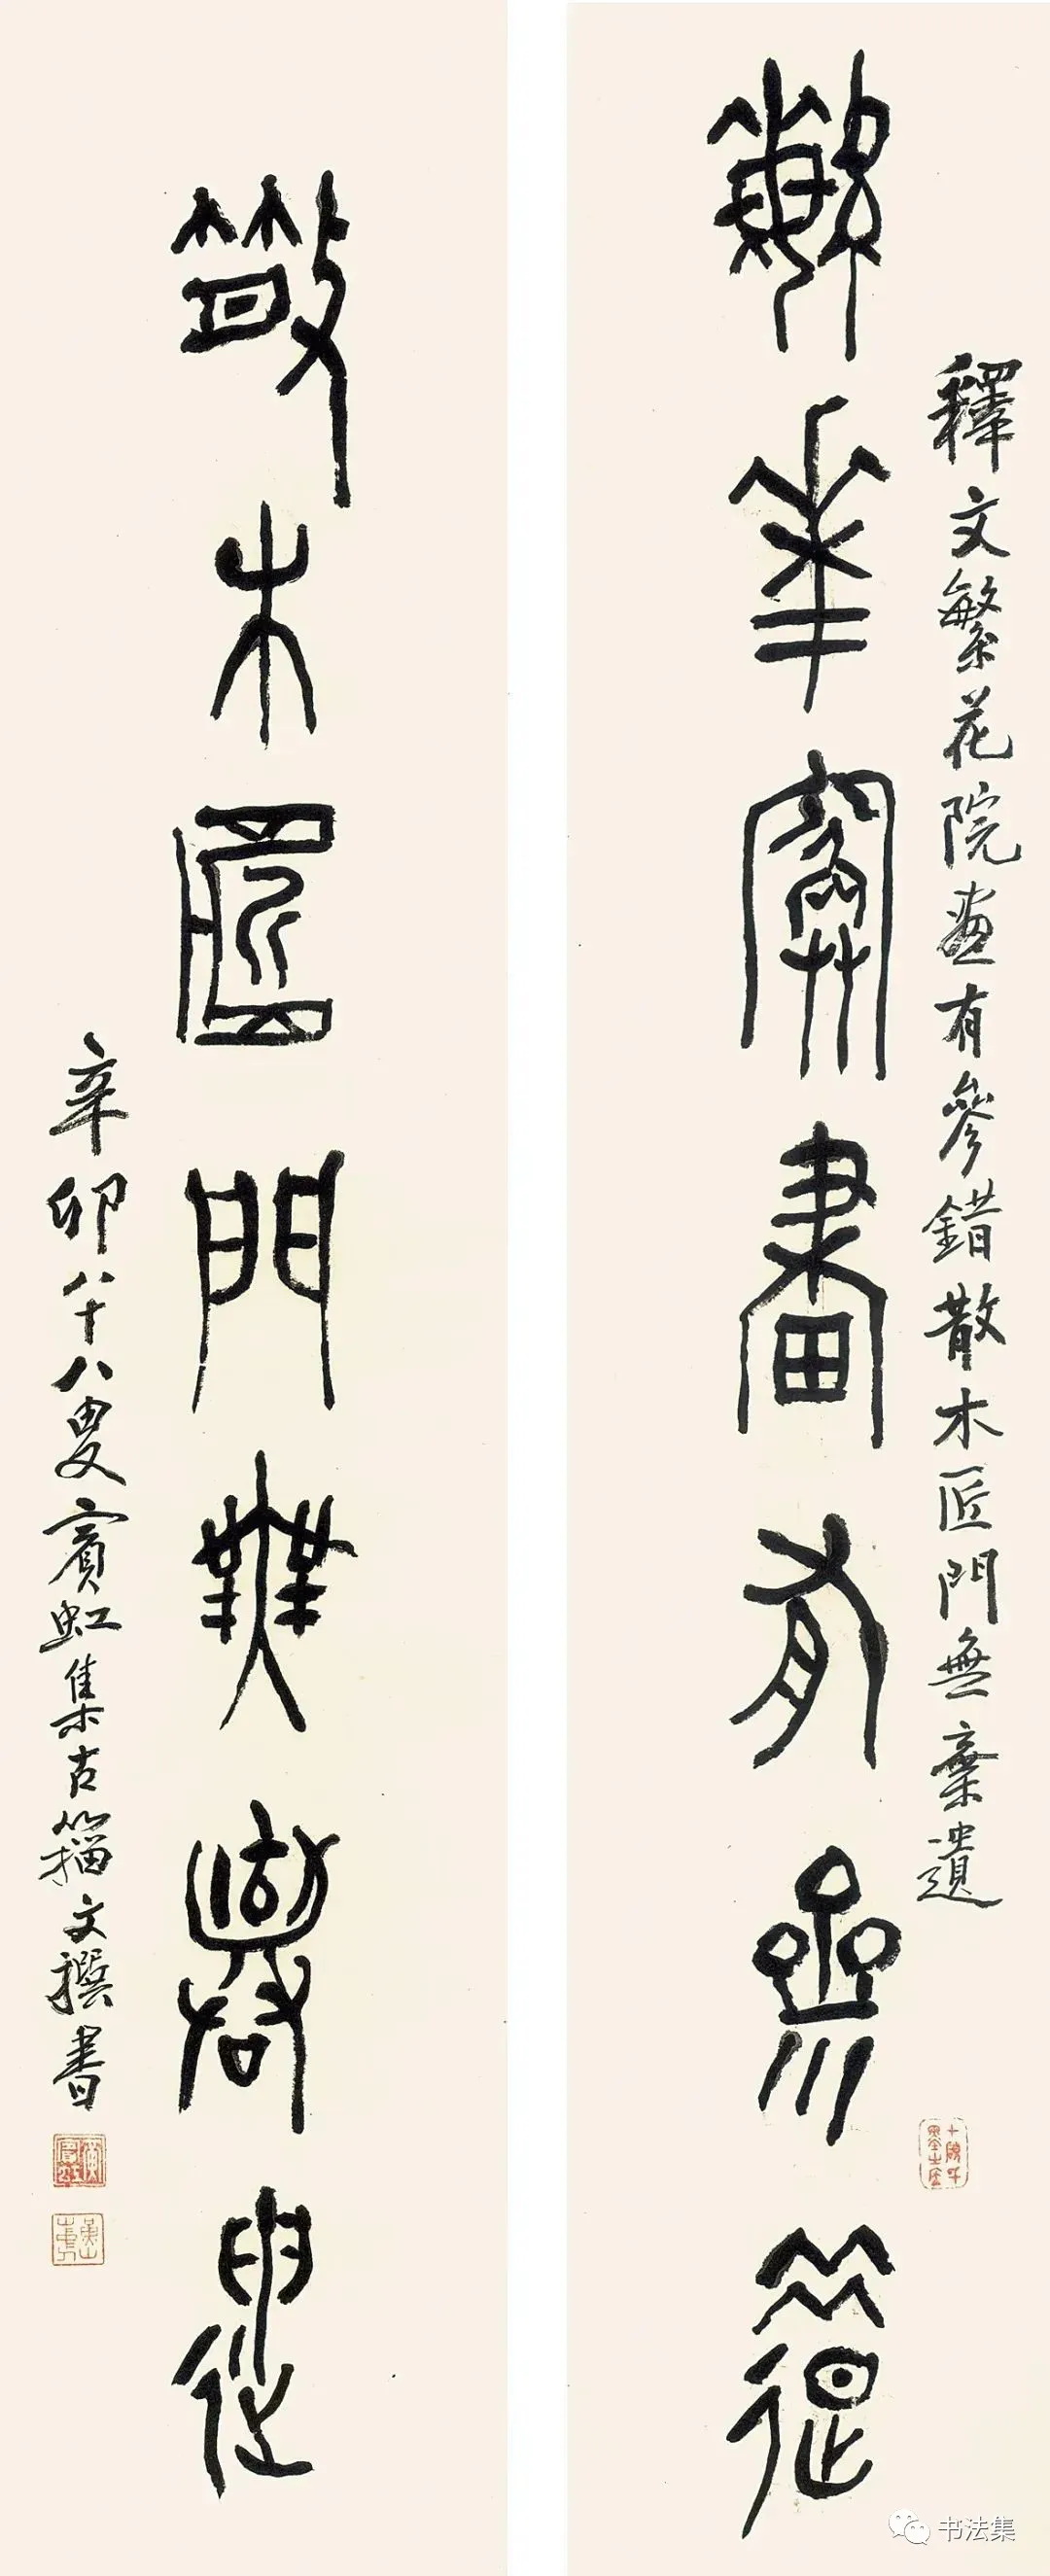 釋文繁花院畫有參錯散木匠門無棄遺
繁華院畫有參錯
散木匠門無棄遺
辛卯八十八叟賓虹集古籀文撰書
书法集